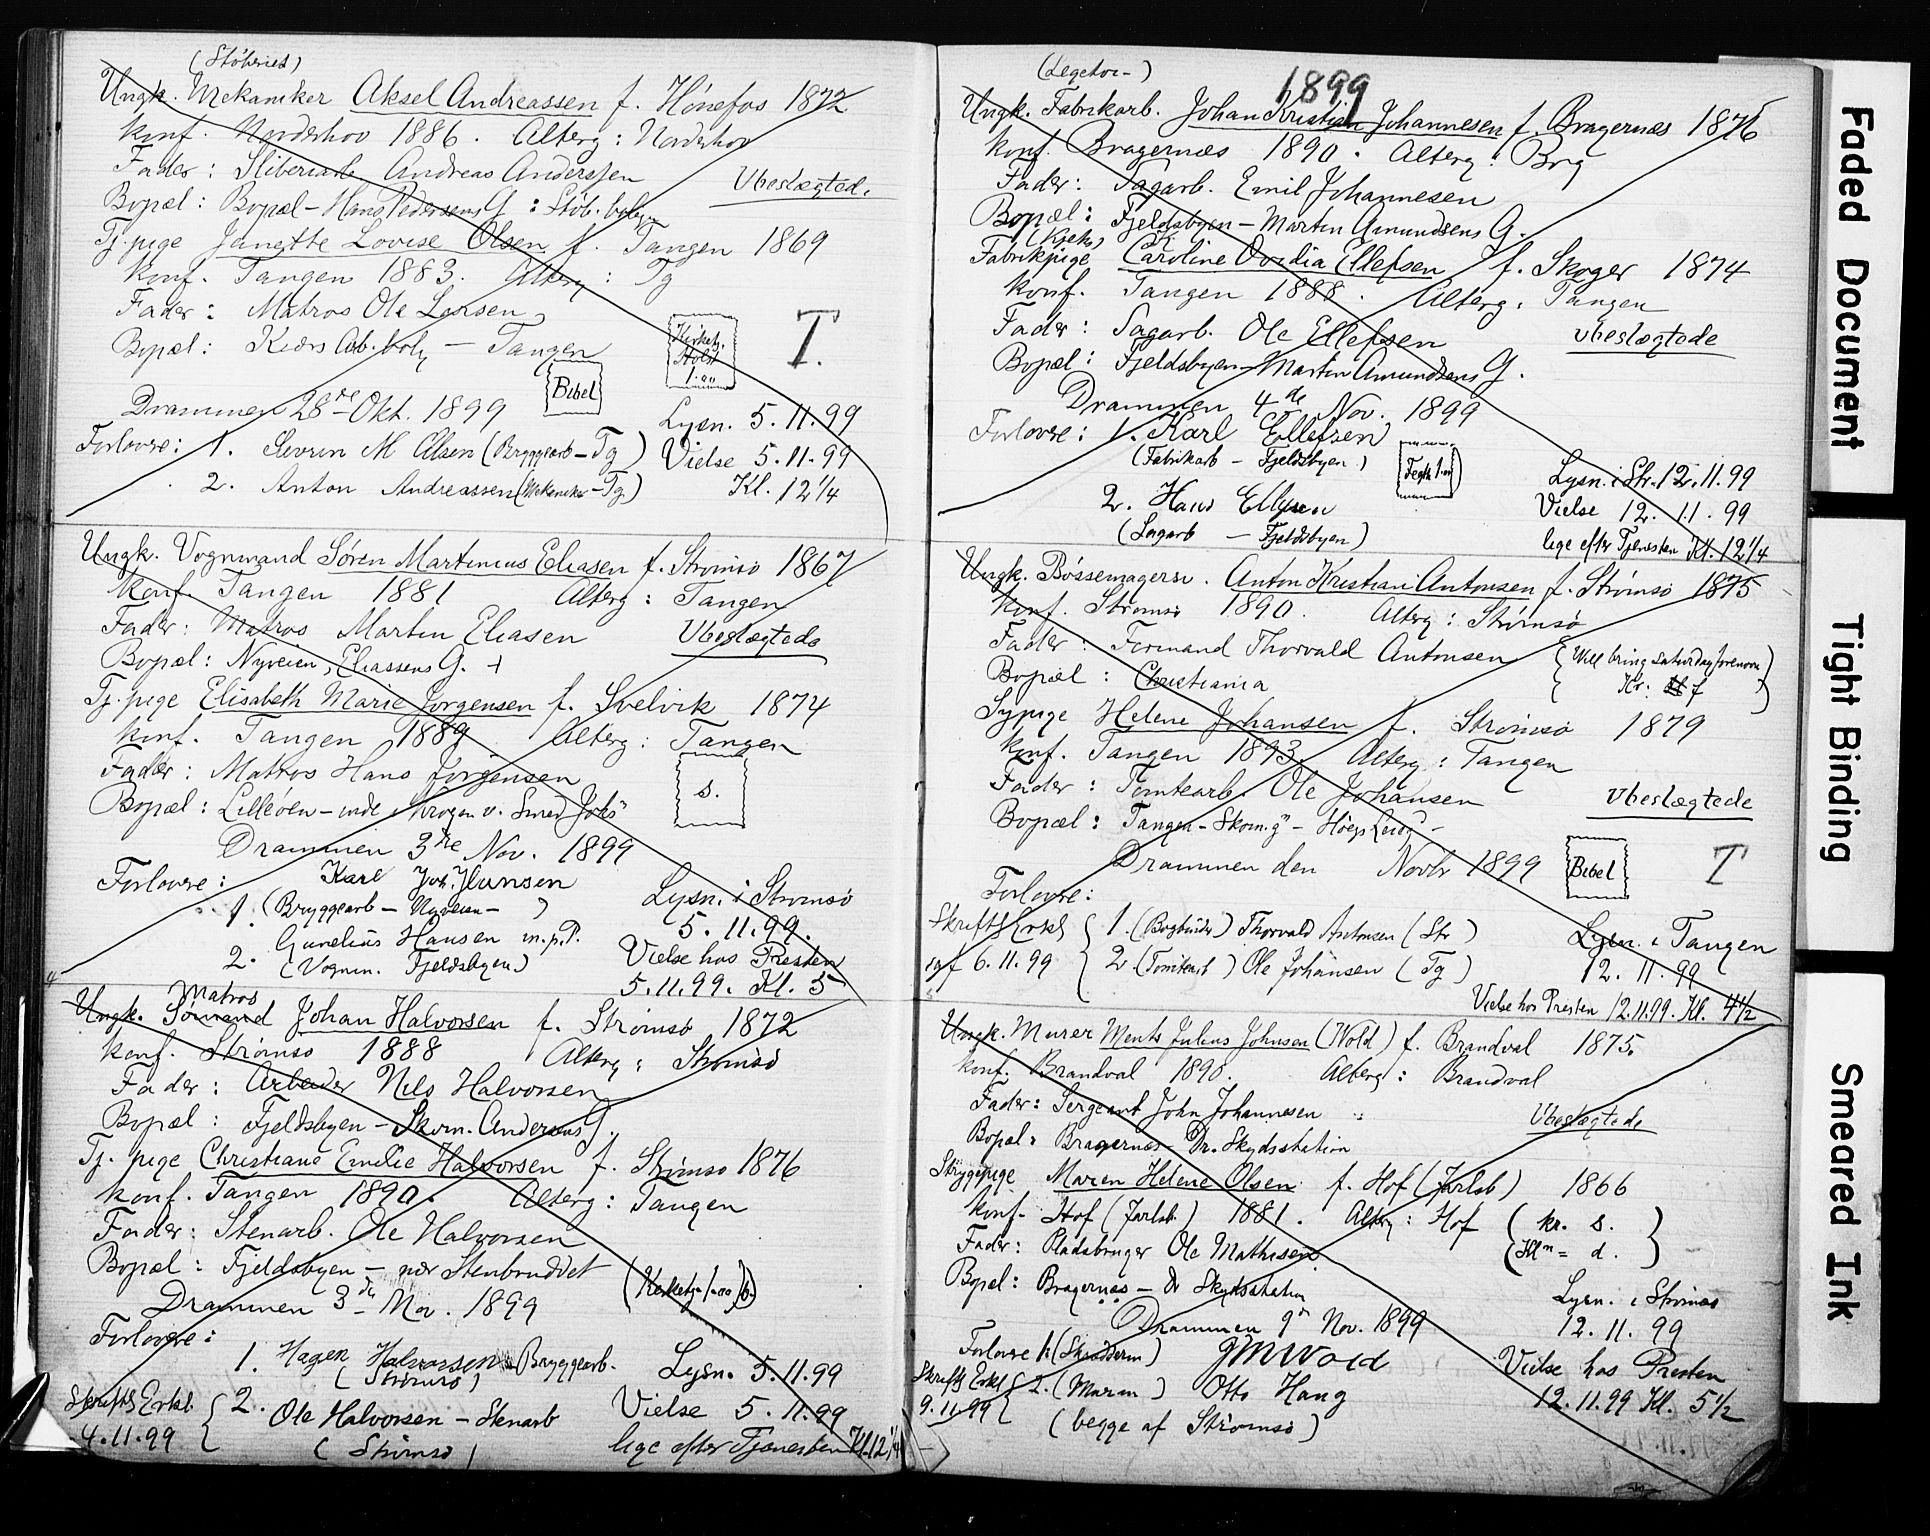 (Støberiet)
Ungk. Mekaniker Aksel Andreassen f. Hønefos 1872
Konf. Norderhov 1886. Alterg: Norderhov
Fader: Sliberiarb Andreas Anderssen
Ubeslægtede.
Bopæl: Bopæl - Hans Pedersens G: Støb.
Tj.pige Janette Lovise Olsen f. Tangen 1869
Konf. Tangen 1883. Alterg: Tg
Fader: Matros Ole Larsen
Bopæl: Kiørs Arb.bolig - Tangen
Kirketj.
Holst
1.00
T.
Bibel
Drammen 28de Okt. 1899
Lysn. 5.11.99
Forlovere: 1. Severin M Olsen (Bryggearb - Tg)
Vielse 5.11.99
2. Anton Andreassen (Mekaniker - Tg)
Kl. 12¼
Ungk. Vognmand Søren Martinius Eliasen f. Strømsø 1867
Konf. Tangen 1881 Alterg: Tangen
Fader: Matros Martin Eliasen
Ubeslægtede
Bopæl: Nyveien, Eliassens G. +
Tj.pige Elisabeth Marie Jørgensen f. Svelvik 1874
Konf. Tangen 1889 Alterg: Tangen
Fader: Matros Hans Jørgensen
s.
Bopæl: Lilleøen - inde i krogen v. Smed Johs
Drammen 3die Nov. 1899
Forlovere: Karl Joh. Hansen
Lysn. i Strømsø
1. (Bryggearb - Nyveien -)
5.11.99.
2. Gunelius Hansen m.p.P.
(Vognm. Fjeldsbyen)
Vielse hos Presten
5.11.99. Kl. 5
Matros
Ungk. Sømand Johan Halvorsen f. Strømsø 1872
Konf. Strømsø 1888 Alterg: Strømsø
Fader: Arbeider Nils Halvorsen
Bopæl: Fjeldsbyen - Skom. Andersens G.
Tj. pige Christiane Emilie Halvorsen f. Strømsø 1876
Konf. Tangen 1890. Alterg: Tangen
Fader: Stenarb. Ole Halvorsen
Bopæl: Fjeldsbyen - nær Stenbruddet
(Kirketj. 1.00) b)
Drammen 3die Nov. 1899
Forlovere:
1. Hagen Halvorsen - Bryggearb.
(Strømsø)
Lysn. 5.11.99
Skriftl Erkl.
4.11.99
2. Ole Halvorsen - Stenarb
(Strømsø)
Vielse 5.11.99
lige efter Tjenesten Kl. 12¼
(Legetøi-)
1899
Ungk. Fabrikarb. Johan Kristian Johannesen f. Bragernæs 1876
Konf. Bragernæs 1890. Alterg: Brg
Fader: Sagarb. Emil Johannesen
Bopæl: Fjeldsbyen - Martin Amundsens G.
(Kjeks)
Fabrikpige Caroline Ovidia Ellefsen f. Skoger 1874
K
Konf. Tangen 1888. Alterg: Tangen
Fader: Sagarb. Ole Ellefsen
Ubeslægtede
Bopæl: Fjeldsbyen - Martin Amundsens G.
Drammen 4de Nov. 1899
Forlovere: 1. Karl Ellefsen
(Fabrikarb - Fjeldsbyen)
Lysn. i Str. 12.11.99
2. Hans Ellefsen
(Sagarb - Fjeldsbyen)
Vielse 12.11.99
lige efter Tjenesten Kl. 12¼
Ungk. Bøssemagersv. Anton Kristian Antonsen f. Strømsø 1875
Konf. Strømsø 1890. Alterg: Strømsø
Fader: Formand Thorvald Antonsen
(Will bring Saturday forenoon)
Bopæl: Christiania
Sypige Helene Johansen f. Strømsø 1879
Konf. Tangen 1893. Alterg: Tangen
Fader: Tomtearb. Ole Johansen
Ubeslægtede
Bopæl: Tangen - Skom.g -
Drammen den Novbr 1899
Bibel
T
Forlovere:
Skriftl Erkl
af 6.11.99
1. (Bogbinder) Thorvald Antonsen (Str)
2. (Tomtearb) Ole Johansen (Tg)
Lysn. i Tangen
12.11.99
Vielse hos Presten 12.11.99. Kl. 4½
Ungk. Murer Ments Julius Johnsen (Wold) f. Brandval 1875.
Konf. Brandval 1890. Alterg: Brandval
Fader: Sergeant John Johannesen
Ubeslægtede
Bopæl: Bragernæs - Dr. Skydsstation
Strygepige Maren Helene Olsen f. Hof (Jarlsb) 1866
Konf. Hof (Jarlsb.) 1881. Alterg: Hof
(kr. s.)
Fader: Pladsbruger Ole Mathisen
Bopæl: Bragernæs - Dr Skydsstation
Lysn. i Strømsø
12.11.99
Drammen 9de Nov. 1899
Forlovere 1. (Skrædderm)
Skriftl Erkl
9.11.99
2. (Murm) Otto Haug
(begge af Strømsø)
Vielse hos Presten
12.11.99 Kl. 5½
Faded Document
Tight Binding
Smeared Ink